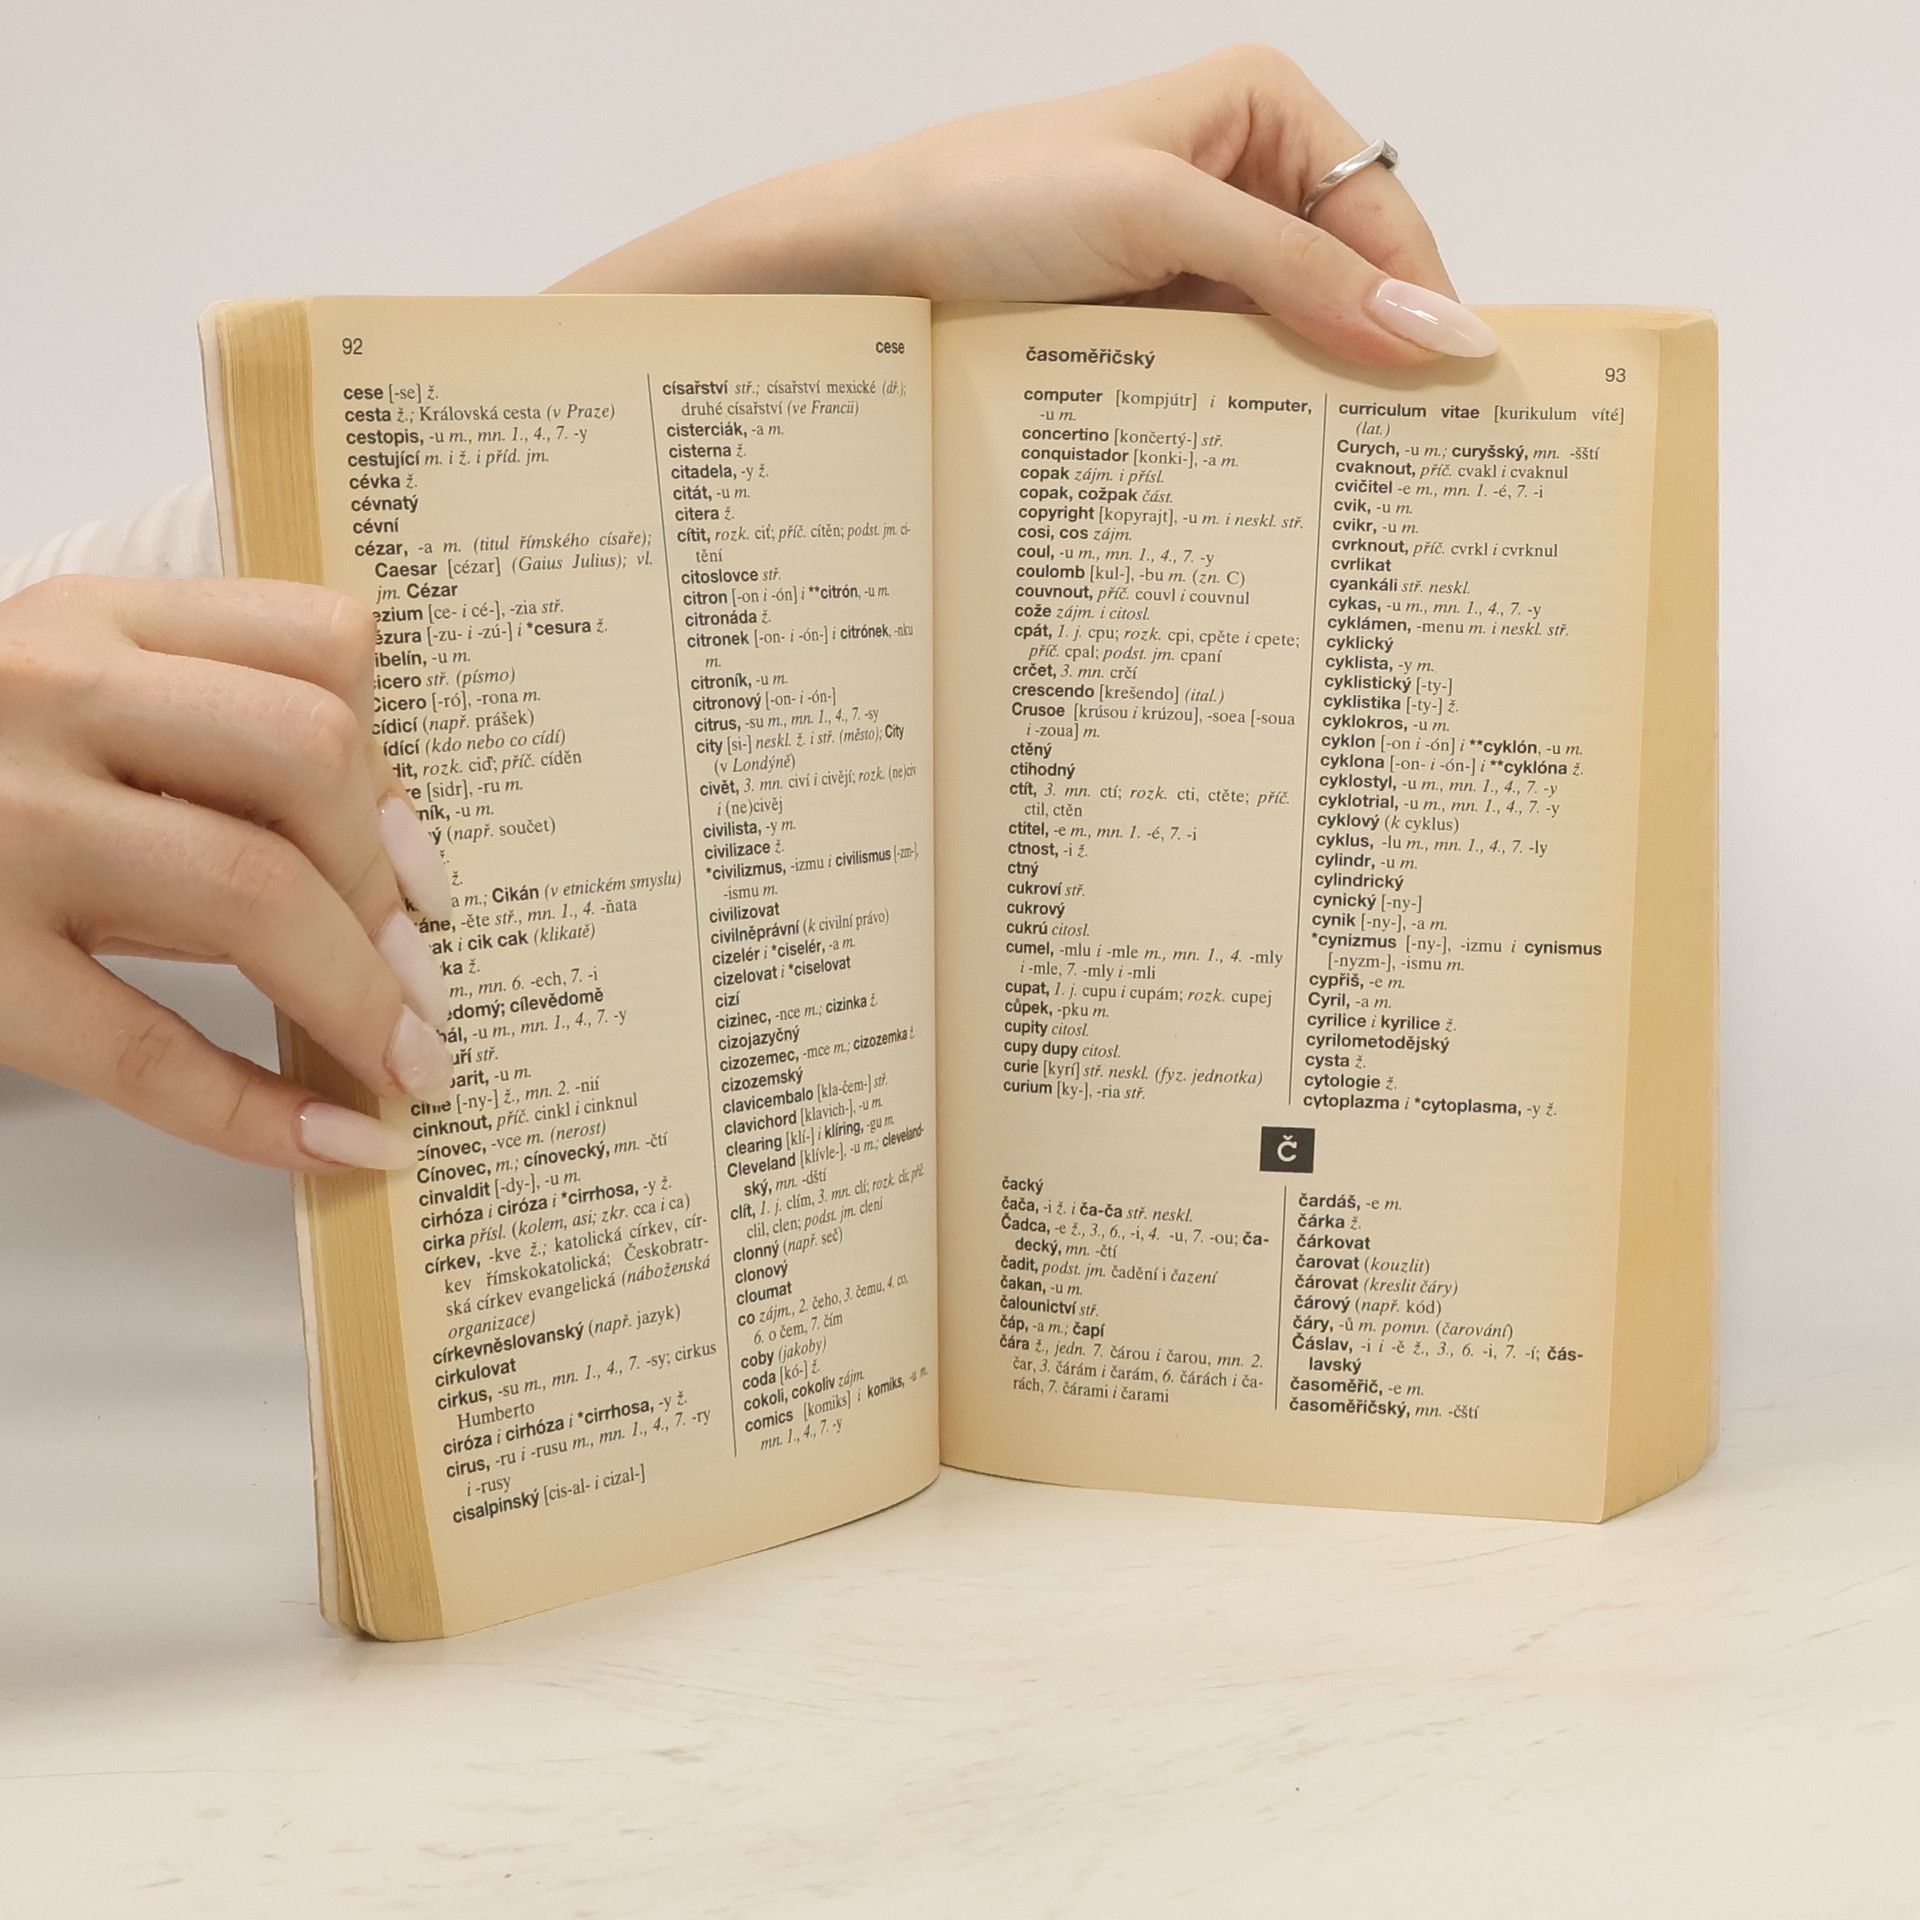 92
cese
cese [-se] ž.
cesta ž.; Královská cesta (v Praze)
cestopis, -u m., mn. 1., 4., 7. -y
cestující m. i ž. i příd. jm.
cévka ž.
cévnatý
cévní
cézar, -a m. (titul římského císaře);
Caesar [cézar] (Gaius Julius); vl.
jm. Cézar
[ce- i cé-], -zia stř.
[-zu- i -zú-] i *cesura ž.
-u m.
stř. (písmo)
[-ró], -rona m.
(např. prášek)
(kdo nebo co cídí)
rozk. ciď; příč. cíděn
[sidr], -ru m.
-u m.
(např. součet)
ž.
ž.
a m.; Cikán (v etnickém smyslu)
-ěte stř., mn. 1., 4. -ňata
i cik cak (klikatě)
ž.
m., mn. 6. -ech, 7. -i
cílevědomě
-u m., mn. 1., 4., 7. -y
stř.
-u m.
[-ny-] ž., mn. 2. -nií
cinknout, příč. cinkl i cinknul
cínovec, -vce m. (nerost)
Cínovec, m.; cínovecký, mn. -čtí
cinvaldit [-dy-], -u m.
cirhóza i ciróza i *cirrhosa, -y ž.
cirka přísl. (kolem, asi; zkr. cca i ca)
církev, -kve ž.; katolická církev, cír-
kev římskokatolická; Českobratr-
ská církev evangelická (náboženská
organizace)
církevněslovanský (např. jazyk)
cirkulovat
cirkus, -su m., mn. 1., 4., 7. -sy; cirkus
Humberto
ciróza i cirhóza i *cirrhosa, -y ž.
cirus, -ru i -rusu m., mn. 1., 4., 7. -ry
i -rusy
cisalpinský [cis-al- i cizal-]
císařství stř.; císařství mexické (dř.);
druhé císařství (ve Francii)
cisterciák, -a m.
cisterna ž.
citadela, -y ž.
citát, -u m.
citera ž.
cítit, rozk. ciť; příč. cítěn; podst. jm. cí-
tění
citoslovce stř.
citron [-on i -ón] i **citrón, -u m.
citronáda ž.
citronek [-on- i -ón-] i citrónek, -nku
m.
citroník, -u m.
citronový [-on- i -ón-]
citrus, -su m., mn. 1., 4., 7. -sy
city [si-] neskl. ž. i stř. (město); City
(v Londýně)
civět, 3. mn. civí i civějí; rozk. (ne)civ
i (ne)civěj
civilista, -y m.
civilizace ž.
*civilizmus, -izmu i civilismus [-zm-],
-ismu m.
civilizovat
civilněprávní (k civilní právo)
cizelér i *ciselér, -a m.
cizelovat i *ciselovat
cizí
cizinec, -nce m.; cizinka ž.
cizojazyčný
cizozemec, -mce m.; cizozemka ž.
cizozemský
clavicembalo [kla-čem-] stř.
clavichord [klavich-], -u m.
clearing [klí-] i klíring, -gu m.
Cleveland [klívle-], -u m.; cleveland-
ský, mn. -dští
clít, 1. j. clím, 3. mn. clí; rozk. cli; příč.
clil, clen; podst. jm. clení
clonný (např. seč)
clonový
cloumat
co zájm., 2. čeho, 3. čemu, 4. co,
6. o čem, 7. čím
coby (jakoby)
coda [kó-] ž.
cokoli, cokoliv zájm.
comics [komiks] i komiks, -u m.
mn. 1., 4., 7. -y
časoměřičský
93
computer [kompjútr] i komputer,
-u m.
concertino [končertý-] stř.
conquistador [konki-], -a m.
copak zájm. i přísl.
copak, cožpak část.
copyright [kopyrajt], -u m. i neskl. stř.
cosi, cos zájm.
coul, -u m., mn. 1., 4., 7. -y
coulomb [kul-], -bu m. (zn. C)
couvnout, příč. couvl i couvnul
cože zájm. i citosl.
cpát, 1. j. cpu; rozk. cpi, cpěte i cpete;
příč. cpal; podst. jm. cpaní
crčet, 3. mn. crčí
crescendo [krešendo] (ital.)
Crusoe [krúsou i krúzou], -soea [-soua
i -zoua] m.
ctěný
ctihodný
ctít, 3. mn. ctí; rozk. cti, ctěte; příč.
ctil, ctěn
ctitel, -e m., mn. 1. -é, 7. -i
ctnost, -i ž.
ctný
cukroví stř.
cukrový
cukrú citosl.
cumel, -mlu i -mle m., mn. 1., 4. -mly
i -mle, 7. -mly i -mli
cupat, 1. j. cupu i cupám; rozk. cupej
cůpek, -pku m.
cupity citosl.
cupy dupy citosl.
curie [kyrí] stř. neskl. (fyz. jednotka)
curium [ky-], -ria stř.
curriculum vitae [kurikulum víté]
(lat.)
Curych, -u m.; curyšský, mn. -šští
cvaknout, příč. cvakl i cvaknul
cvičitel -e m., mn. 1. -é, 7. -i
cvik, -u m.
cvikr, -u m.
cvrknout, příč. cvrkl i cvrknul
cvrlikat
cyankáli stř. neskl.
cykas, -u m., mn. 1., 4., 7. -y
cyklámen, -menu m. i neskl. stř.
cyklický
cyklista, -y m.
cyklistický [-ty-]
cyklistika [-ty-] ž.
cyklokros, -u m.
cyklon [-on i -ón] i **cyklón, -u m.
cyklona [-on- i -ón-] i **cyklóna ž.
cyklostyl, -u m., mn. 1., 4., 7. -y
cyklotrial, -u m., mn. 1., 4., 7. -y
cyklový (k cyklus)
cyklus, -lu m., mn. 1., 4., 7. -ly
cylindr, -u m.
cylindrický
cynický [-ny-]
cynik [-ny-], -a m.
*cynizmus [-ny-], -izmu i cynismus
[-nyzm-], -ismu m.
cypřiš, -e m.
Cyril, -a m.
cyrilice i kyrilice ž.
cyrilometodějský
cysta ž.
cytologie ž.
cytoplazma i *cytoplasma, -y ž.
Č
čacký
čača, -i ž. i ča-ča stř. neskl.
Čadca, -e ž., 3., 6., -i, 4. -u, 7. -ou; ča-
decký, mn. -čtí
čadit, podst. jm. čadění i čazení
čakan, -u m.
čalounictví stř.
čáp, -a m.; čapí
čára ž., jedn. 7. čárou i čarou, mn. 2.
čar, 3. čárám i čarám, 6. čárách i ča-
rách, 7. čárami i čarami
čardáš, -e m.
čárka ž.
čárkovat
čarovat (kouzlit)
čárovat (kreslit čáry)
čárový (např. kód)
čáry, -ů m. pomn. (čarování)
Čáslav, -i i -ě ž., 3., 6. -i, 7. -í; čás-
lavský
časoměřič, -e m.
časoměřičský, mn. -čští